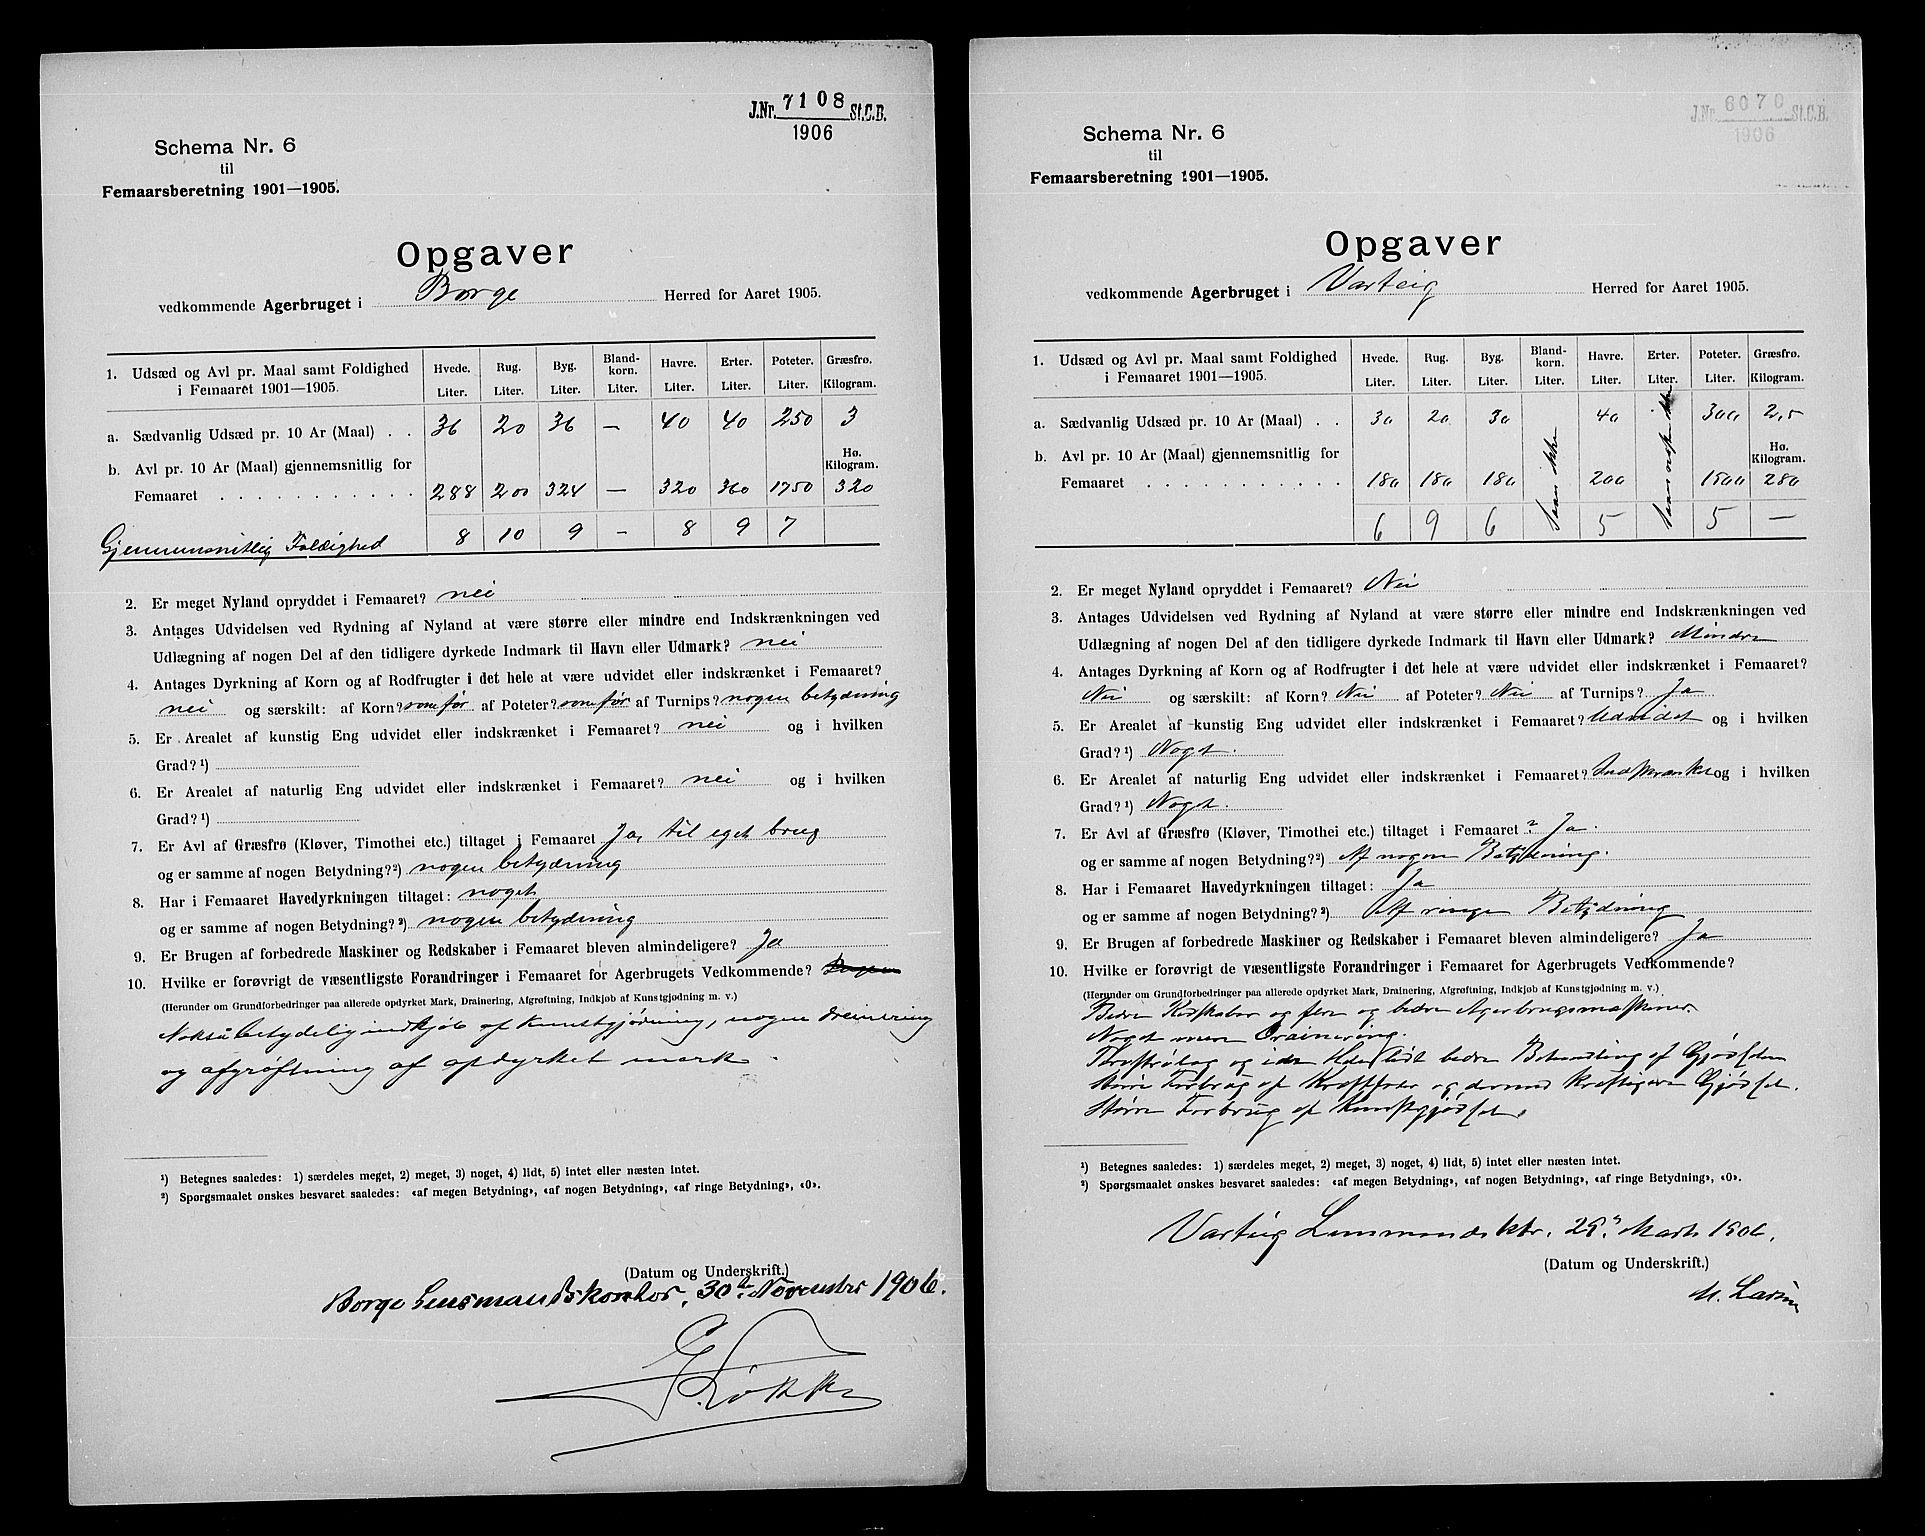 J.Nr. 7108 St.C.B.
1906
Schema Nr. 6
til
Femaarsberetning 1901—1905.
Opgaver
vedkommende Agerbruget i Borge Herred for Aaret 1905.
1. Udsæd og Avl pr. Maal samt Foldighed i Femaaret 1901—1905. Hvede. Liter. Rug. Liter. Byg. Liter. Bland-korn. Liter. Havre. Liter. Erter. Liter. Poteter. Liter. Græsfrø. Kilogram.
a. Sædvanlig Udsæd pr. 10 Ar (Maal) . . 36 20 36 — 40 40 250 3
Hø. Kilogram.
b. Avl pr. 10 Ar (Maal) gjennemsnitlig for
Femaaret . . . . . . . . . . . 288 200 324 — 320 360 1750 320
Gjennemsnitlig Foldighed 8 10 9 - 8 9 7
2. Er meget Nyland opryddet i Femaaret? nei
3. Antages Udvidelsen ved Rydning af Nyland at være større eller mindre end Indskrænkningen ved
Udlægning af nogen Del af den tidligere dyrkede Indmark til Havn eller Udmark? nei
4. Antages Dyrkning af Korn og af Rodfrugter i det hele at være udvidet eller indskrænket i Femaaret?
nei og særskilt: af Korn? som før af Poteter? som før af Turnips? nogen betydning
5. Er Arealet af kunstig Eng udvidet eller indskrænket i Femaaret? nei og i hvilken
Grad?¹)
6. Er Arealet af naturlig Eng udvidet eller indskrænket i Femaaret? nei og i hvilken
Grad?¹)
7. Er Avl af Græsfrø (Kløver, Timothei etc.) tiltaget i Femaaret Ja, til eget brug
og er samme af nogen Betydning?²) nogen betydning
8. Har i Femaaret Havedyrkningen tiltaget: noget
og er samme af nogen Betydning?²) nogen betydning
9. Er Brugen af forbedrede Maskiner og Redskaber i Femaaret bleven almindeligere? Ja
10. Hvilke er forøvrigt de væsentligste Forandringer i Femaaret for Agerbrugets Vedkommende?
(Herunder om Grundforbedringer paa allerede opdyrket Mark, Drainering, Afgrøftning, Indkjøb af Kunstgjødning m. v.)
Nokså betydelig indkjøb af kunstgjødning, nogen dreinering
og afgrøftning af opdyrket mark.
¹) Betegnes saaledes: 1) særdeles meget, 2) meget, 3) noget, 4) lidt, 5) intet eller næsten intet.
²) Spørgsmaalet ønskes besvaret saaledes: «af megen Betydning», «af nogen Betydning», «af ringe Betydning», «0».
(Datum og Underskrift.)
Borge Lensmandskontor, 30te November 1906.
Løkke
J.Nr. 6070 St.C.B.
1906
Schema Nr. 6
til
Femaarsberetning 1901—1905.
Opgaver
vedkommende Agerbruget i Varteig Herred for Aaret 1905.
1. Udsæd og Avl pr. Maal samt Foldighed i Femaaret 1901—1905. Hvede. Liter. Rug. Liter. Byg. Liter. Bland-korn. Liter. Havre. Liter. Erter. Liter. Poteter. Liter. Græsfrø. Kilogram.
a. Sædvanlig Udsæd pr. 10 Ar (Maal) . . 30 20 30 Saaes ikke 40 Saaes ikke 300 2,5
Hø. Kilogram.
b. Avl pr. 10 Ar (Maal) gjennemsnitlig for
Femaaret . . . . . . . . . . . 180 180 180 200 1500 280
6 9 6 5 5 —
2. Er meget Nyland opryddet i Femaaret? Nei
3. Antages Udvidelsen ved Rydning af Nyland at være større eller mindre end Indskrænkningen ved
Udlægning af nogen Del af den tidligere dyrkede Indmark til Havn eller Udmark? Mindre
4. Antages Dyrkning af Korn og af Rodfrugter i det hele at være udvidet eller indskrænket i Femaaret?
Nei og særskilt: af Korn? Nei af Poteter? Nei af Turnips? Ja
5. Er Arealet af kunstig Eng udvidet eller indskrænket i Femaaret? Udvidet og i hvilken
Grad?¹) Noget.
6. Er Arealet af naturlig Eng udvidet eller indskrænket i Femaaret? Indskrænket og i hvilken
Grad?¹) Noget.
7. Er Avl af Græsfrø (Kløver, Timothei etc.) tiltaget i Femaaret? Ja.
og er samme af nogen Betydning?²) Af nogen Betydning.
8. Har i Femaaret Havedyrkningen tiltaget: Ja
og er samme af nogen Betydning?²) Af ringe Betydning
9. Er Brugen af forbedrede Maskiner og Redskaber i Femaaret bleven almindeligere? Ja
10. Hvilke er forøvrigt de væsentligste Forandringer i Femaaret for Agerbrugets Vedkommende?
(Herunder om Grundforbedringer paa allerede opdyrket Mark, Drainering, Afgrøftning, Indkjøb af Kunstgjødning m. v.)
Bedre Redskaber og flere og bedre Agerbrugsmaskiner.
Noget mere Drainering.
og i det Hele lidt bedre Behandling af Gjødselen
Større Forbrug af Kraftfoder og dermed kraftigere Gjødsel.
Større Forbrug af Kunstgjødsel.
¹) Betegnes saaledes: 1) særdeles meget, 2) meget, 3) noget, 4) lidt, 5) intet eller næsten intet.
²) Spørgsmaalet ønskes besvaret saaledes: «af megen Betydning», «af nogen Betydning», «af ringe Betydning», «0».
Varteig Lensmandsktr. 29. Marts 1906.
(Datum og Underskrift.)
M. Larsen